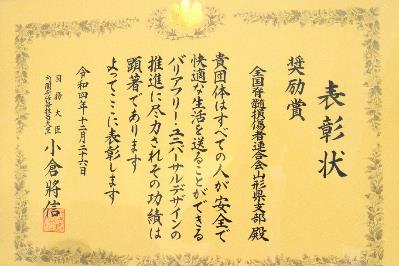 表彰状
奨励賞
全国脊髄損傷者連合会山形県支部 殿
貴団体はすべての人が安全で
快適な生活を送ることができる
バリアフリー・ユニバーサルデザインの
推進に尽力されその功績は
顕著であります
よってここに表彰します
令和四年十二月二十六日
国務大臣
小倉將信